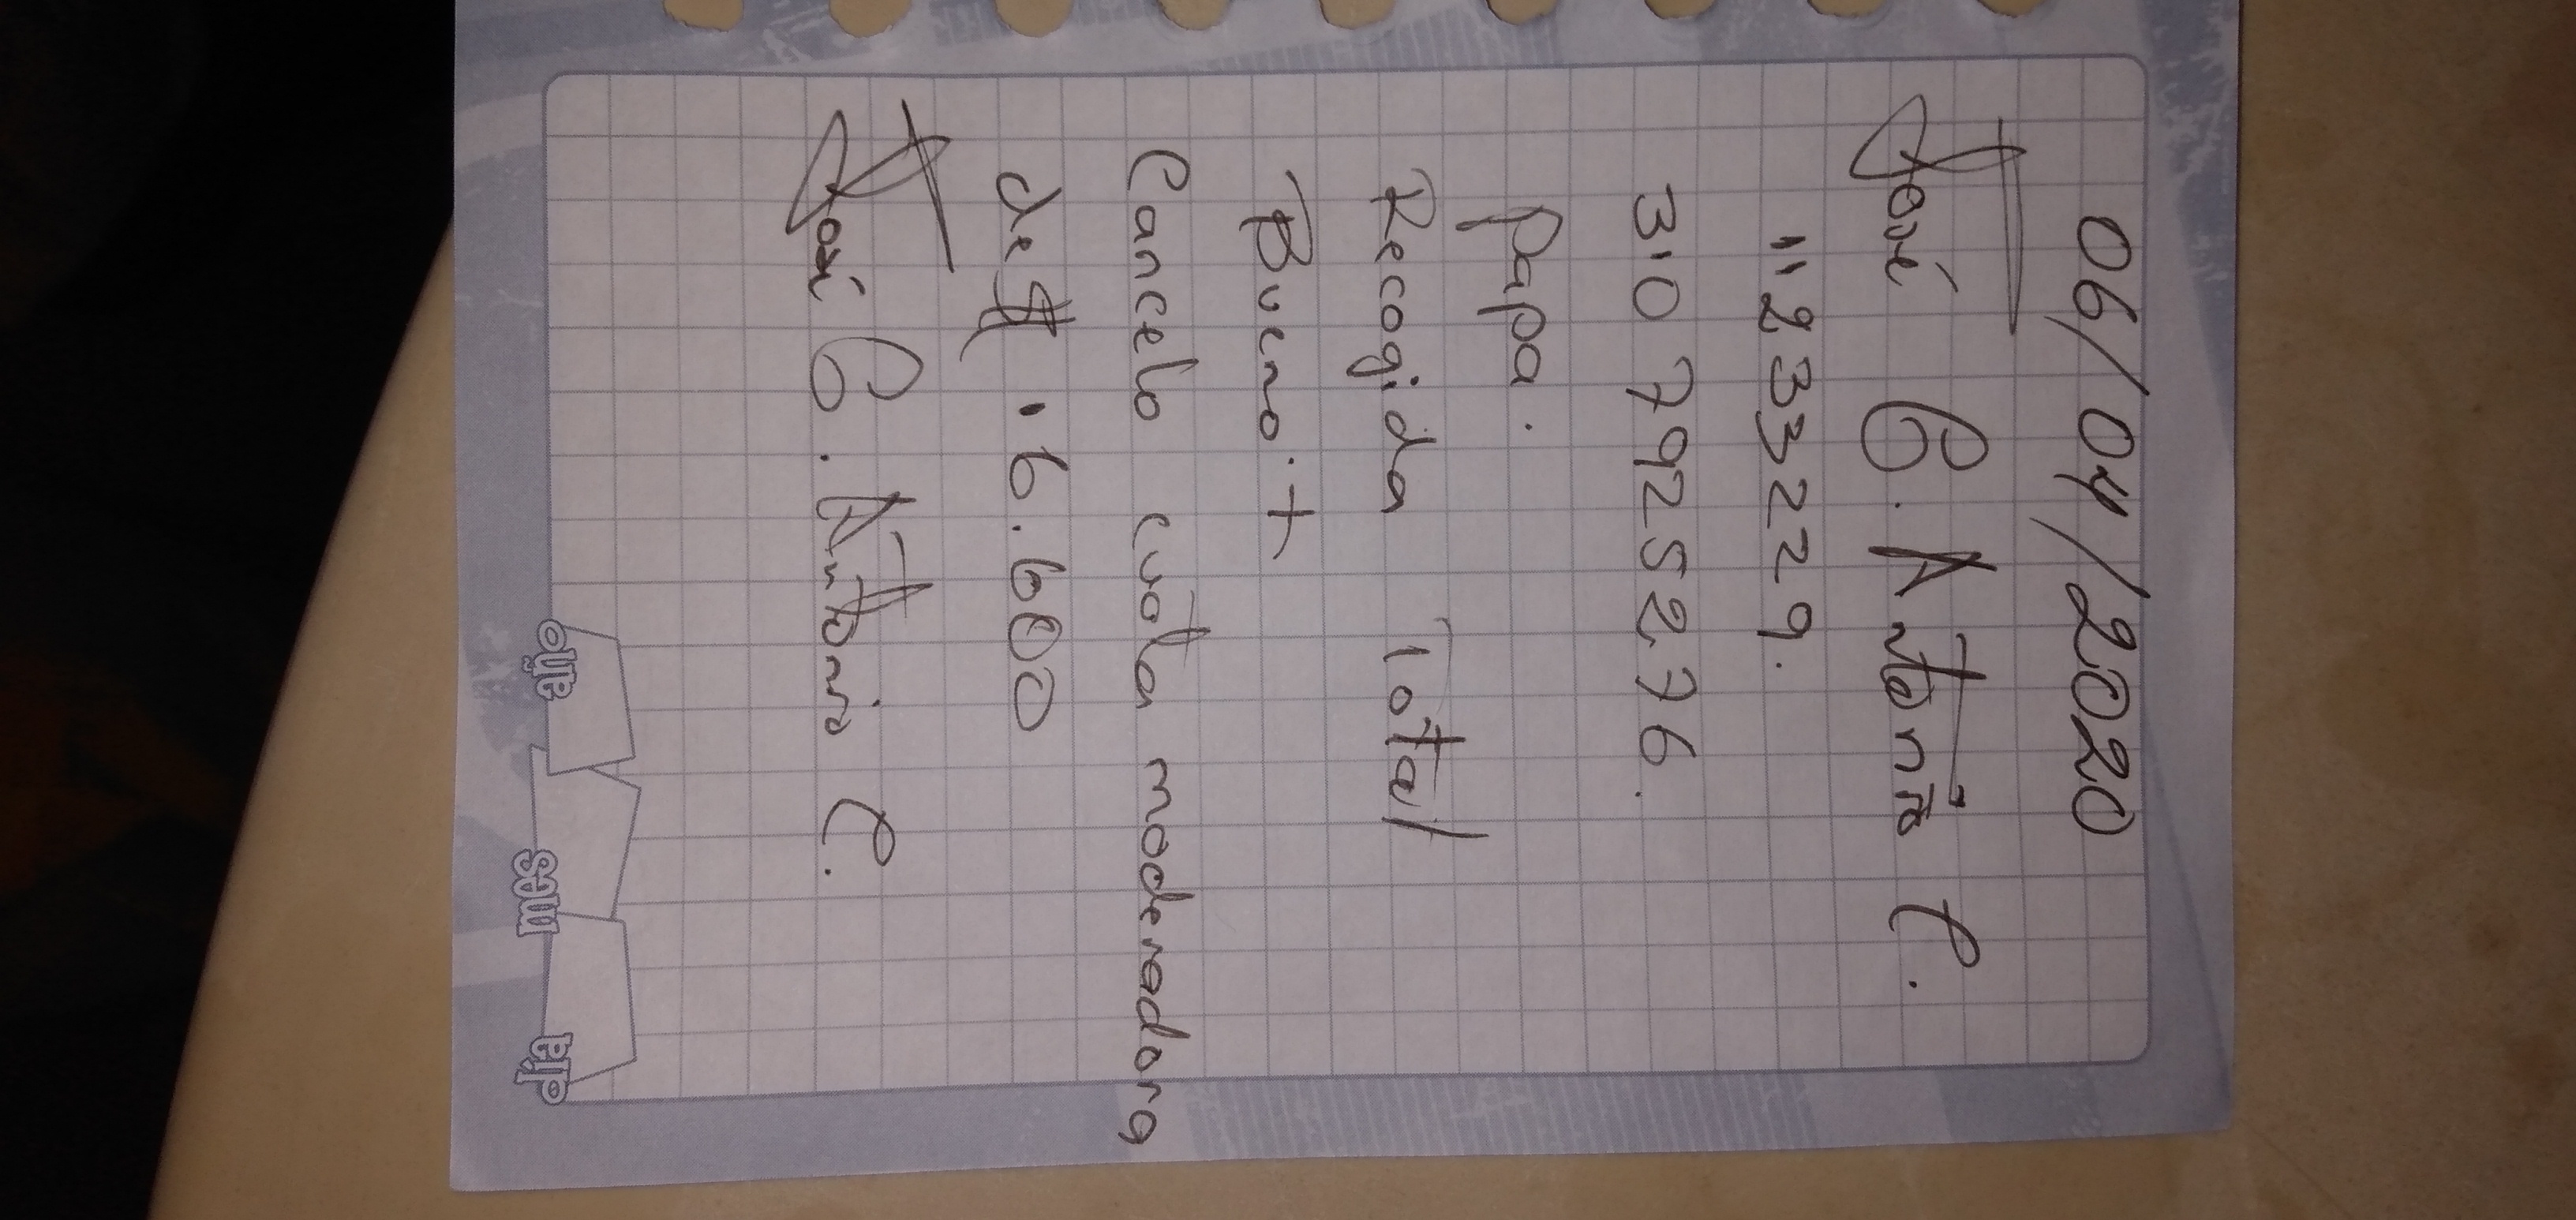 06/04/2020
José G. Antonio C.
11233229.
310 7925276.
Papa.
Recogida Total
Bueno +
Cancelo cuota moderadora
de $ 16.600
José G. Antonio C.
día mes año